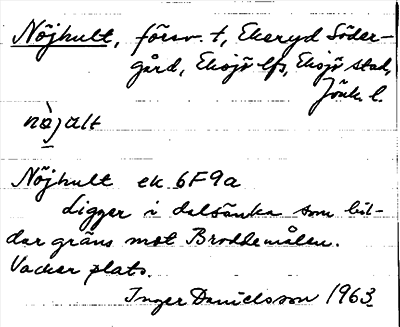 Nöjhult, försv. t, Ekeryd Söder-
gård, Eksjö lfs, Eksjö stad,
Jönk. l.
nàjalt
Nöjhult ek 6F9a
Ligger i dalsänka som bil-
dar gräns mot Broddemålen.
Vacker plats.
Inger Danielsson 1963